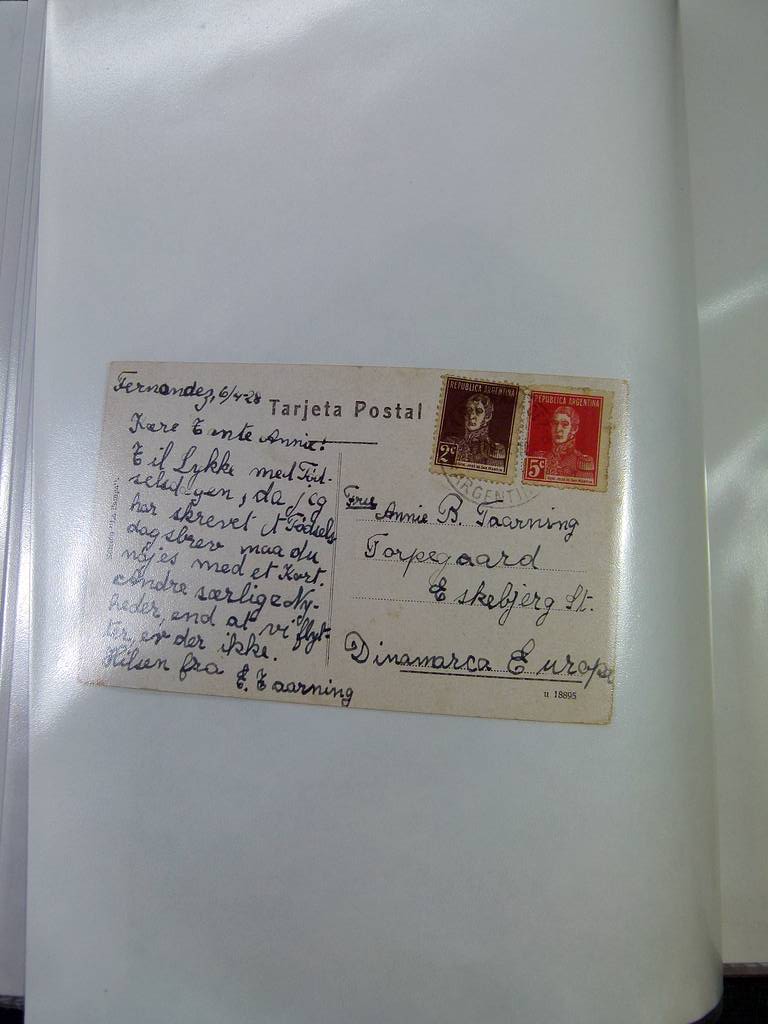 Fernandez, 6/4-28
Tarjeta Postal
Kære Tante Annie!
Til Lykke med Föd-
selsdagen, da jeg
har skrevet et Födsels
dagsbrev maa du
nöjes med et Kort.
Andre særlige Ny-
heder, end at vi flyt-
ter, er der ikke.
Hilsen fra
E. Taarning
REPUBLICA ARGENTINA
2c
REPUBLICA ARGENTINA
5c
ARGENTIN
Frue Annie B. Taarning
Torpegaard
Eskebjerg St.
Dinamarca Europa
u 18895